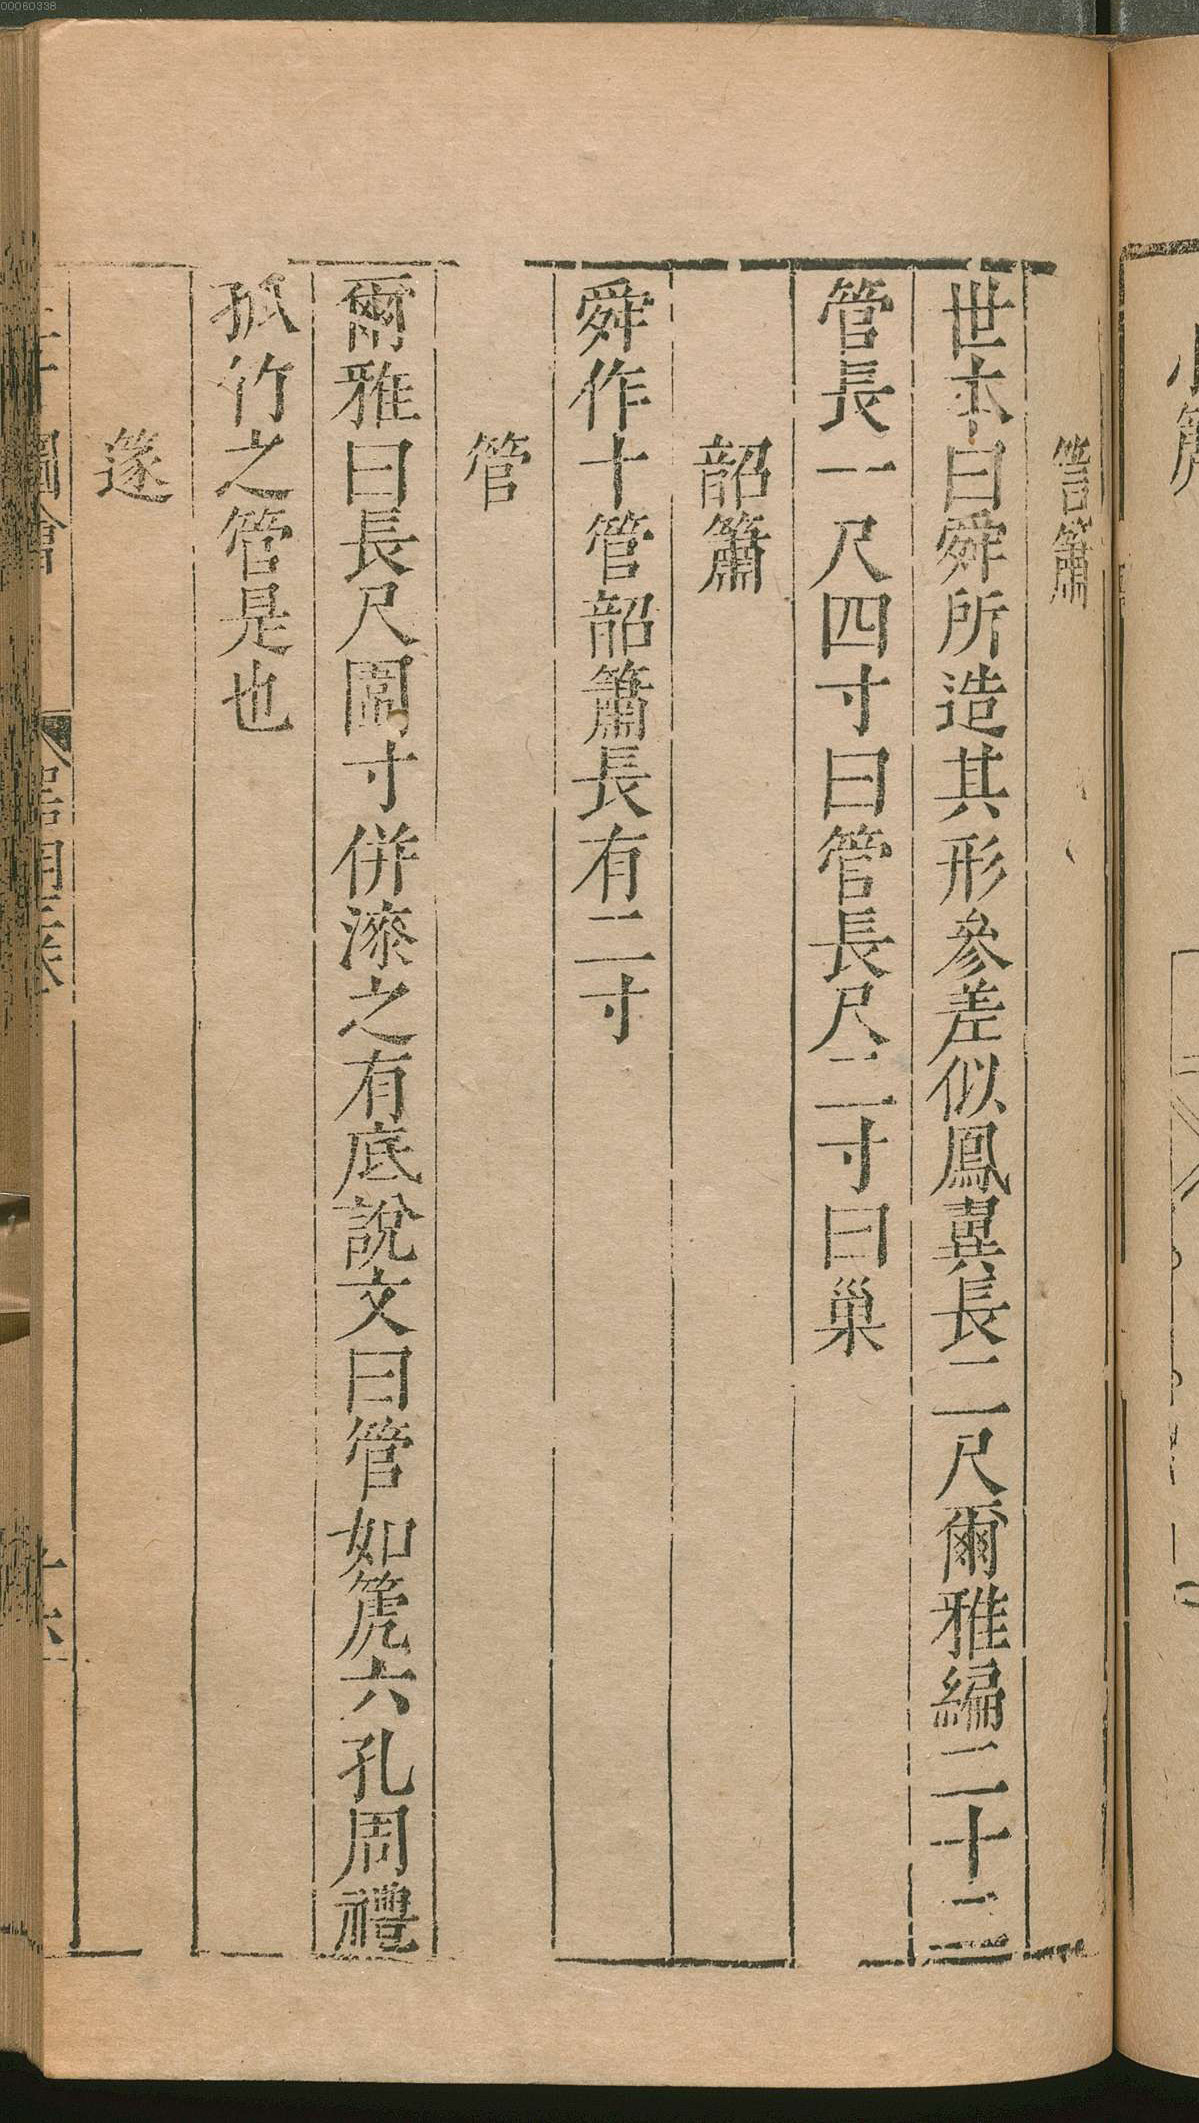 管簫
世本曰舜所造其形參差似鳳翼長二尺爾雅編二十二
管長一尺四寸曰管長尺二寸曰巢
韶簫
舜作十管韶簫長有二寸
管
爾雅曰長尺圍寸併漆之有底說文曰管如篪六孔周禮
孤竹之管是也
篴
00060338